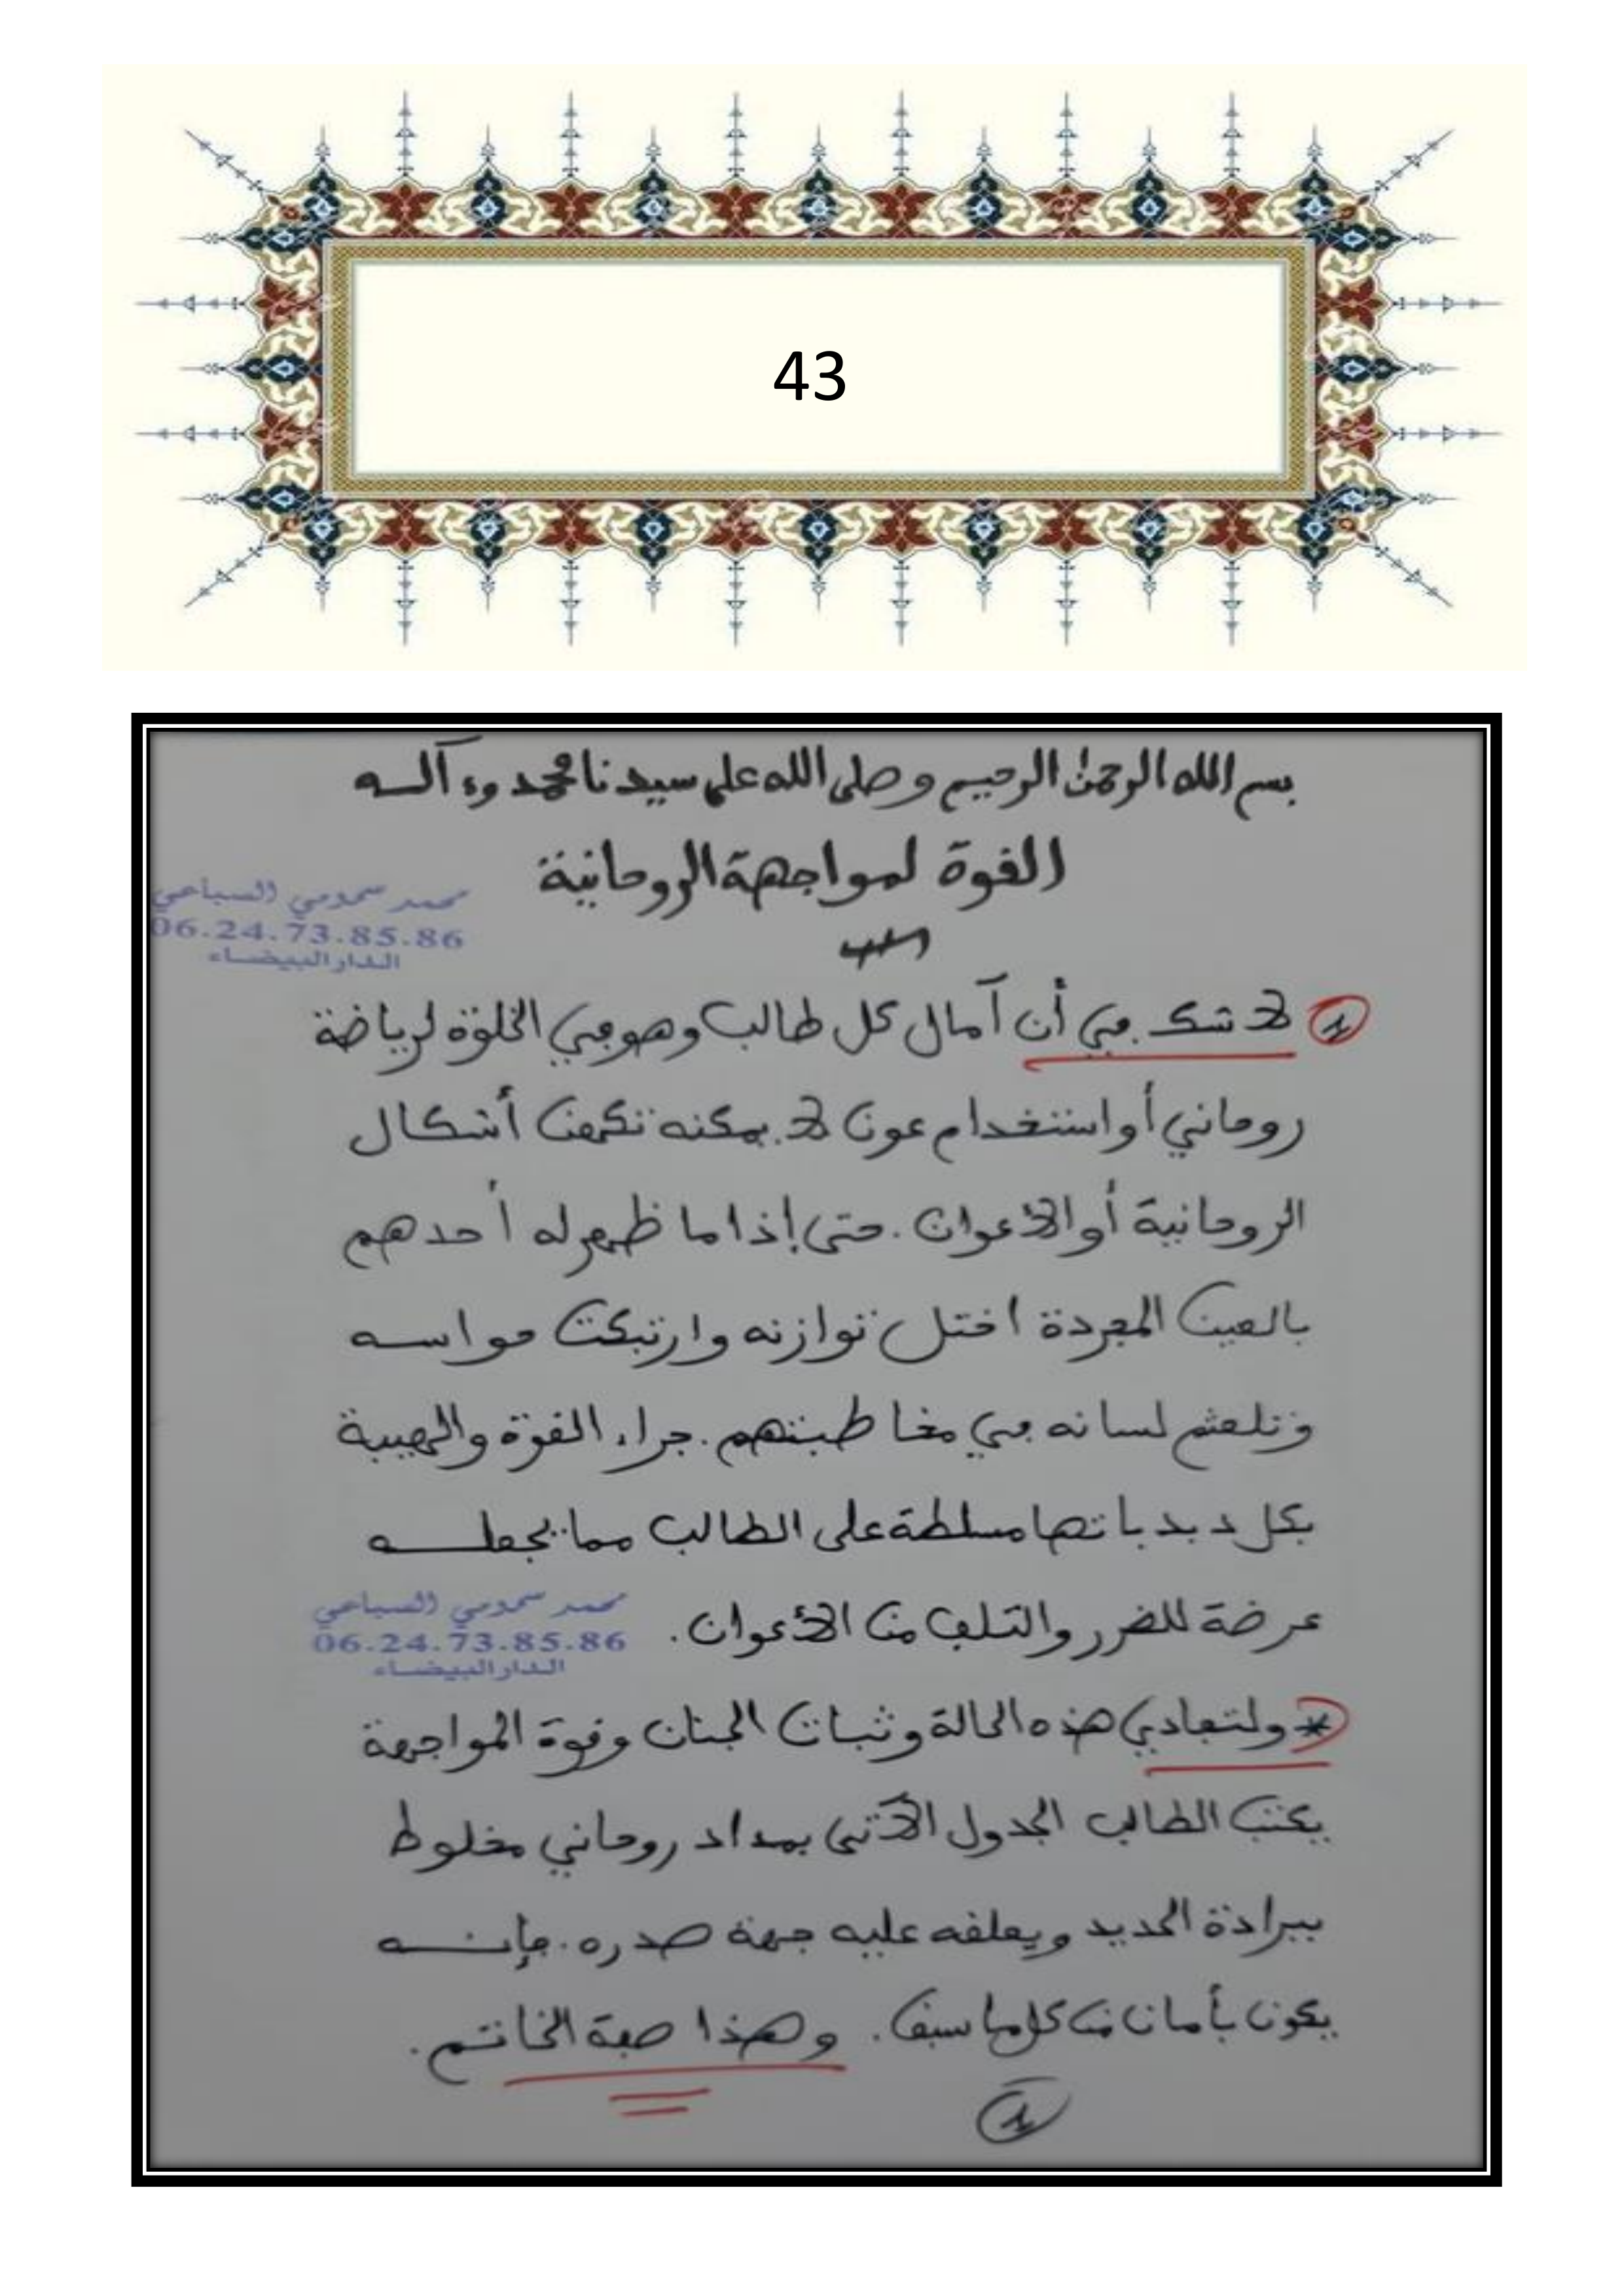 43
بسم الله الرحمن الرحيم وصلى الله على سيدنا محمد وءآله
القوة لمواجهة الروحانية
محمد سحمومي السباعي
06.24.73.85.86
الدار البيضاء
1 لا شك في أن آمال كل طالب وهو في الخلوة لرياضة
روحاني أو استخدام عون لا يمكنه تكهن أشكال
الروحانية أو الأعوان. حتى إذا ما ظهر له أحدهم
بالعين المجردة اختل توازنه وارتبكت حواسه
وتلعثم لسانه في مخاطبتهم. جراء القوة والهيبة
بكل دبدباتها مسلطة على الطالب مما يجعله
عرضة للضرر والتلف من الأعوان.
محمد سحمومي السباعي
06.24.73.85.86
الدار البيضاء
* ولتفادي هذه الحالة وثبات الجنان وقوة المواجهة
يكتب الطالب الجدول الآتي بمداد روحاني مخلوط
ببرادة الحديد ويعلقه عليه جهة صدره. فإنه
يكون بأمان من كل ما سبق. وهذا صفة الخاتم.
1